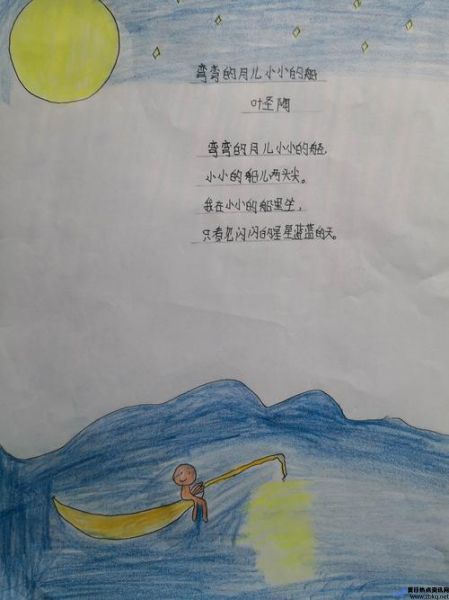 弯弯的月儿小小的船
叶圣陶
弯弯的月儿小小的船,
小小的船儿两头尖。
我在小小的船里坐,
只看见闪闪的星星蓝蓝的天。
夏日热点资讯网
www.tbkq.net